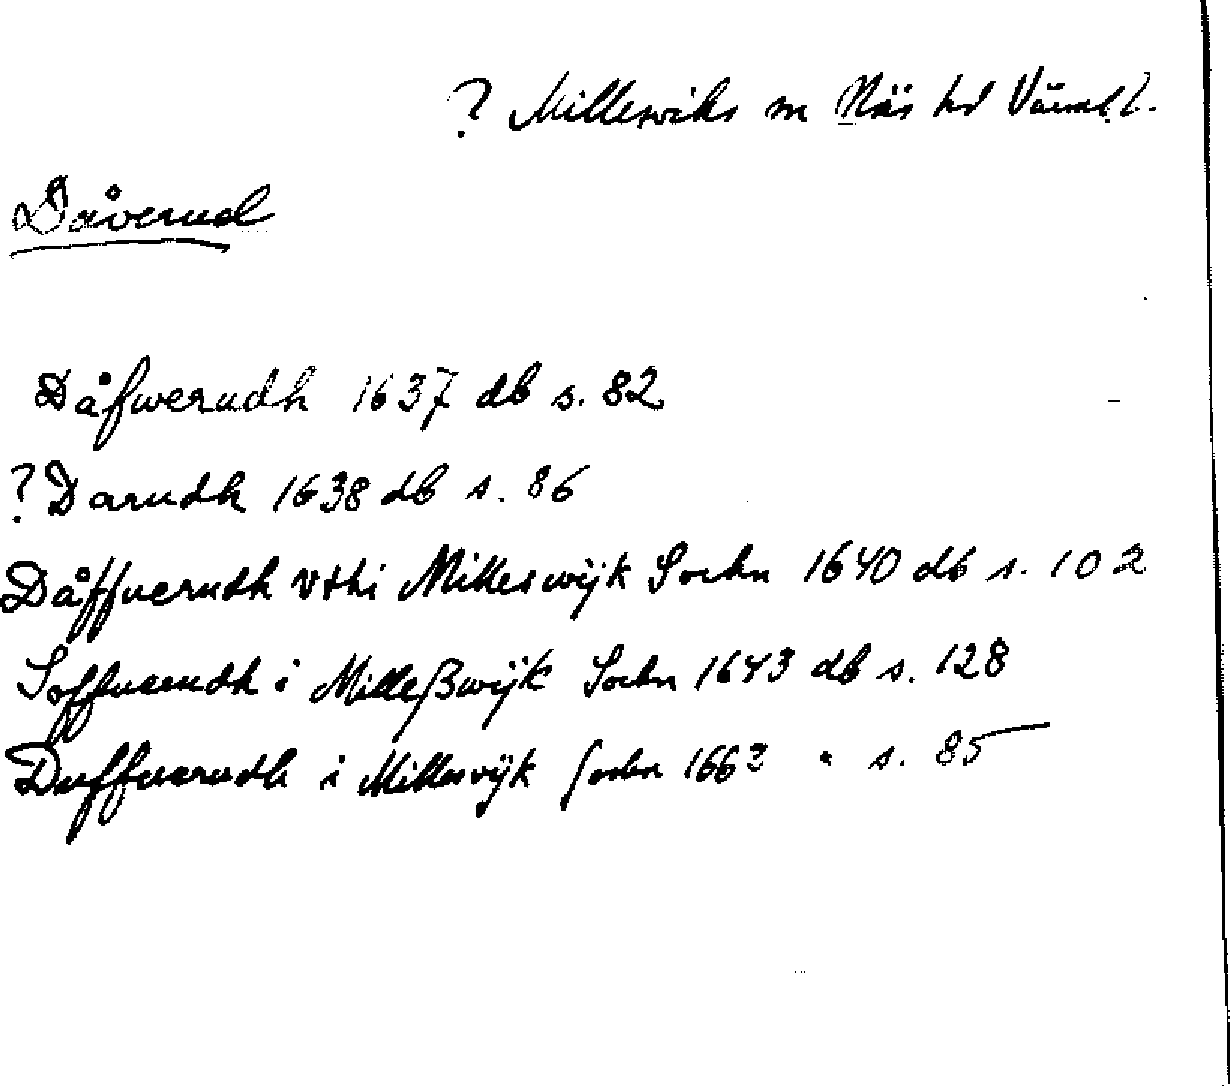 ? Millesviks sn Näs hd Värml.
Dåverud
Dåfwerudh 1637 db s. 82
? Darudh 1638 db s. 86
Dåffuerudh vthi Milleswijk Sochn 1640 db s. 102
Soffuerudh i Milleßwijk Sochn 1643 db s. 128
Duffuerudh i Millesvijk sochn 1663 " s. 85